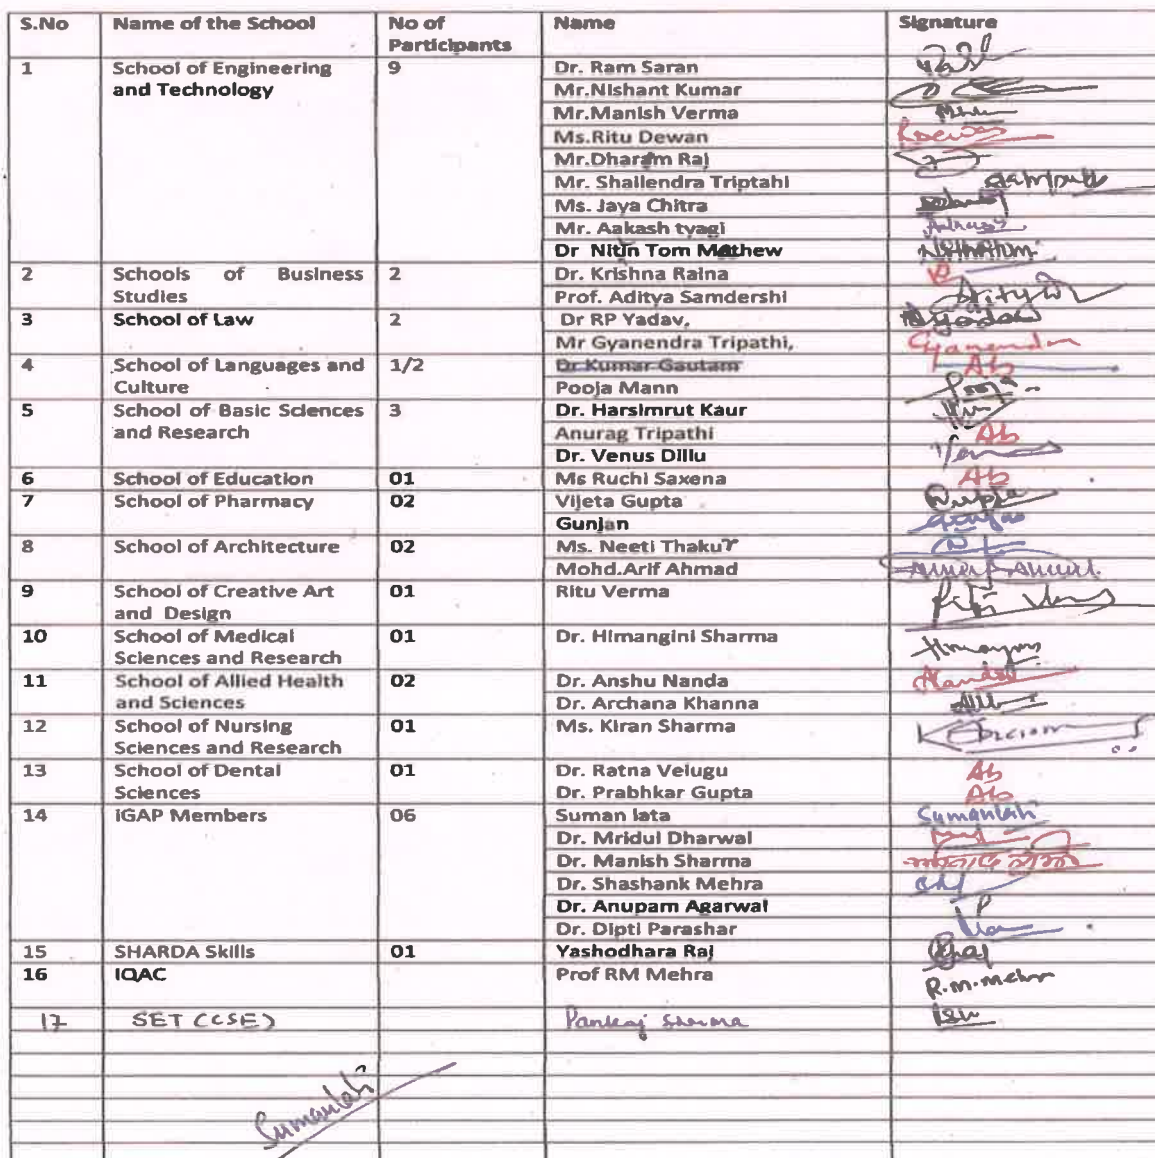 S.No Name of the School No of Participants Name Signature
1 School of Engineering and Technology 9 Dr. Ram Saran
Mr.Nishant Kumar
Mr.Manish Verma
Ms.Ritu Dewan Rdewan
Mr.Dharam Raj
Mr. Shailendra Triptahi
Ms. Jaya Chitra
Mr. Aakash tyagi
Dr Nitin Tom Mathew
2 Schools of Business Studies 2 Dr. Krishna Raina
Prof. Aditya Samdershi
3 School of Law 2 Dr RP Yadav, Yadav
Mr Gyanendra Tripathi, Gyanendra
4 School of Languages and Culture 1/2 Dr Kumar Gautam Ab
Pooja Mann Pooja
5 School of Basic Sciences and Research 3 Dr. Harsimrut Kaur
Anurag Tripathi Ab
Dr. Venus Dillu
6 School of Education 01 Ms Ruchi Saxena Ab
7 School of Pharmacy 02 Vijeta Gupta Gupta
Gunjan Gunjan
8 School of Architecture 02 Ms. Neeti Thakur
Mohd.Arif Ahmad
9 School of Creative Art and Design 01 Ritu Verma
10 School of Medical Sciences and Research 01 Dr. Himangini Sharma
11 School of Allied Health and Sciences 02 Dr. Anshu Nanda
Dr. Archana Khanna
12 School of Nursing Sciences and Research 01 Ms. Kiran Sharma
13 School of Dental Sciences 01 Dr. Ratna Velugu Ab
Dr. Prabhkar Gupta Ab
14 IGAP Members 06 Suman lata Sumanlata
Dr. Mridul Dharwal
Dr. Manish Sharma
Dr. Shashank Mehra
Dr. Anupam Agarwal
Dr. Dipti Parashar
15 SHARDA Skills 01 Yashodhara Raj
16 IQAC Prof RM Mehra R.M.Mehra
17 SET (CSE) Pankaj Sharma
Sumanlata